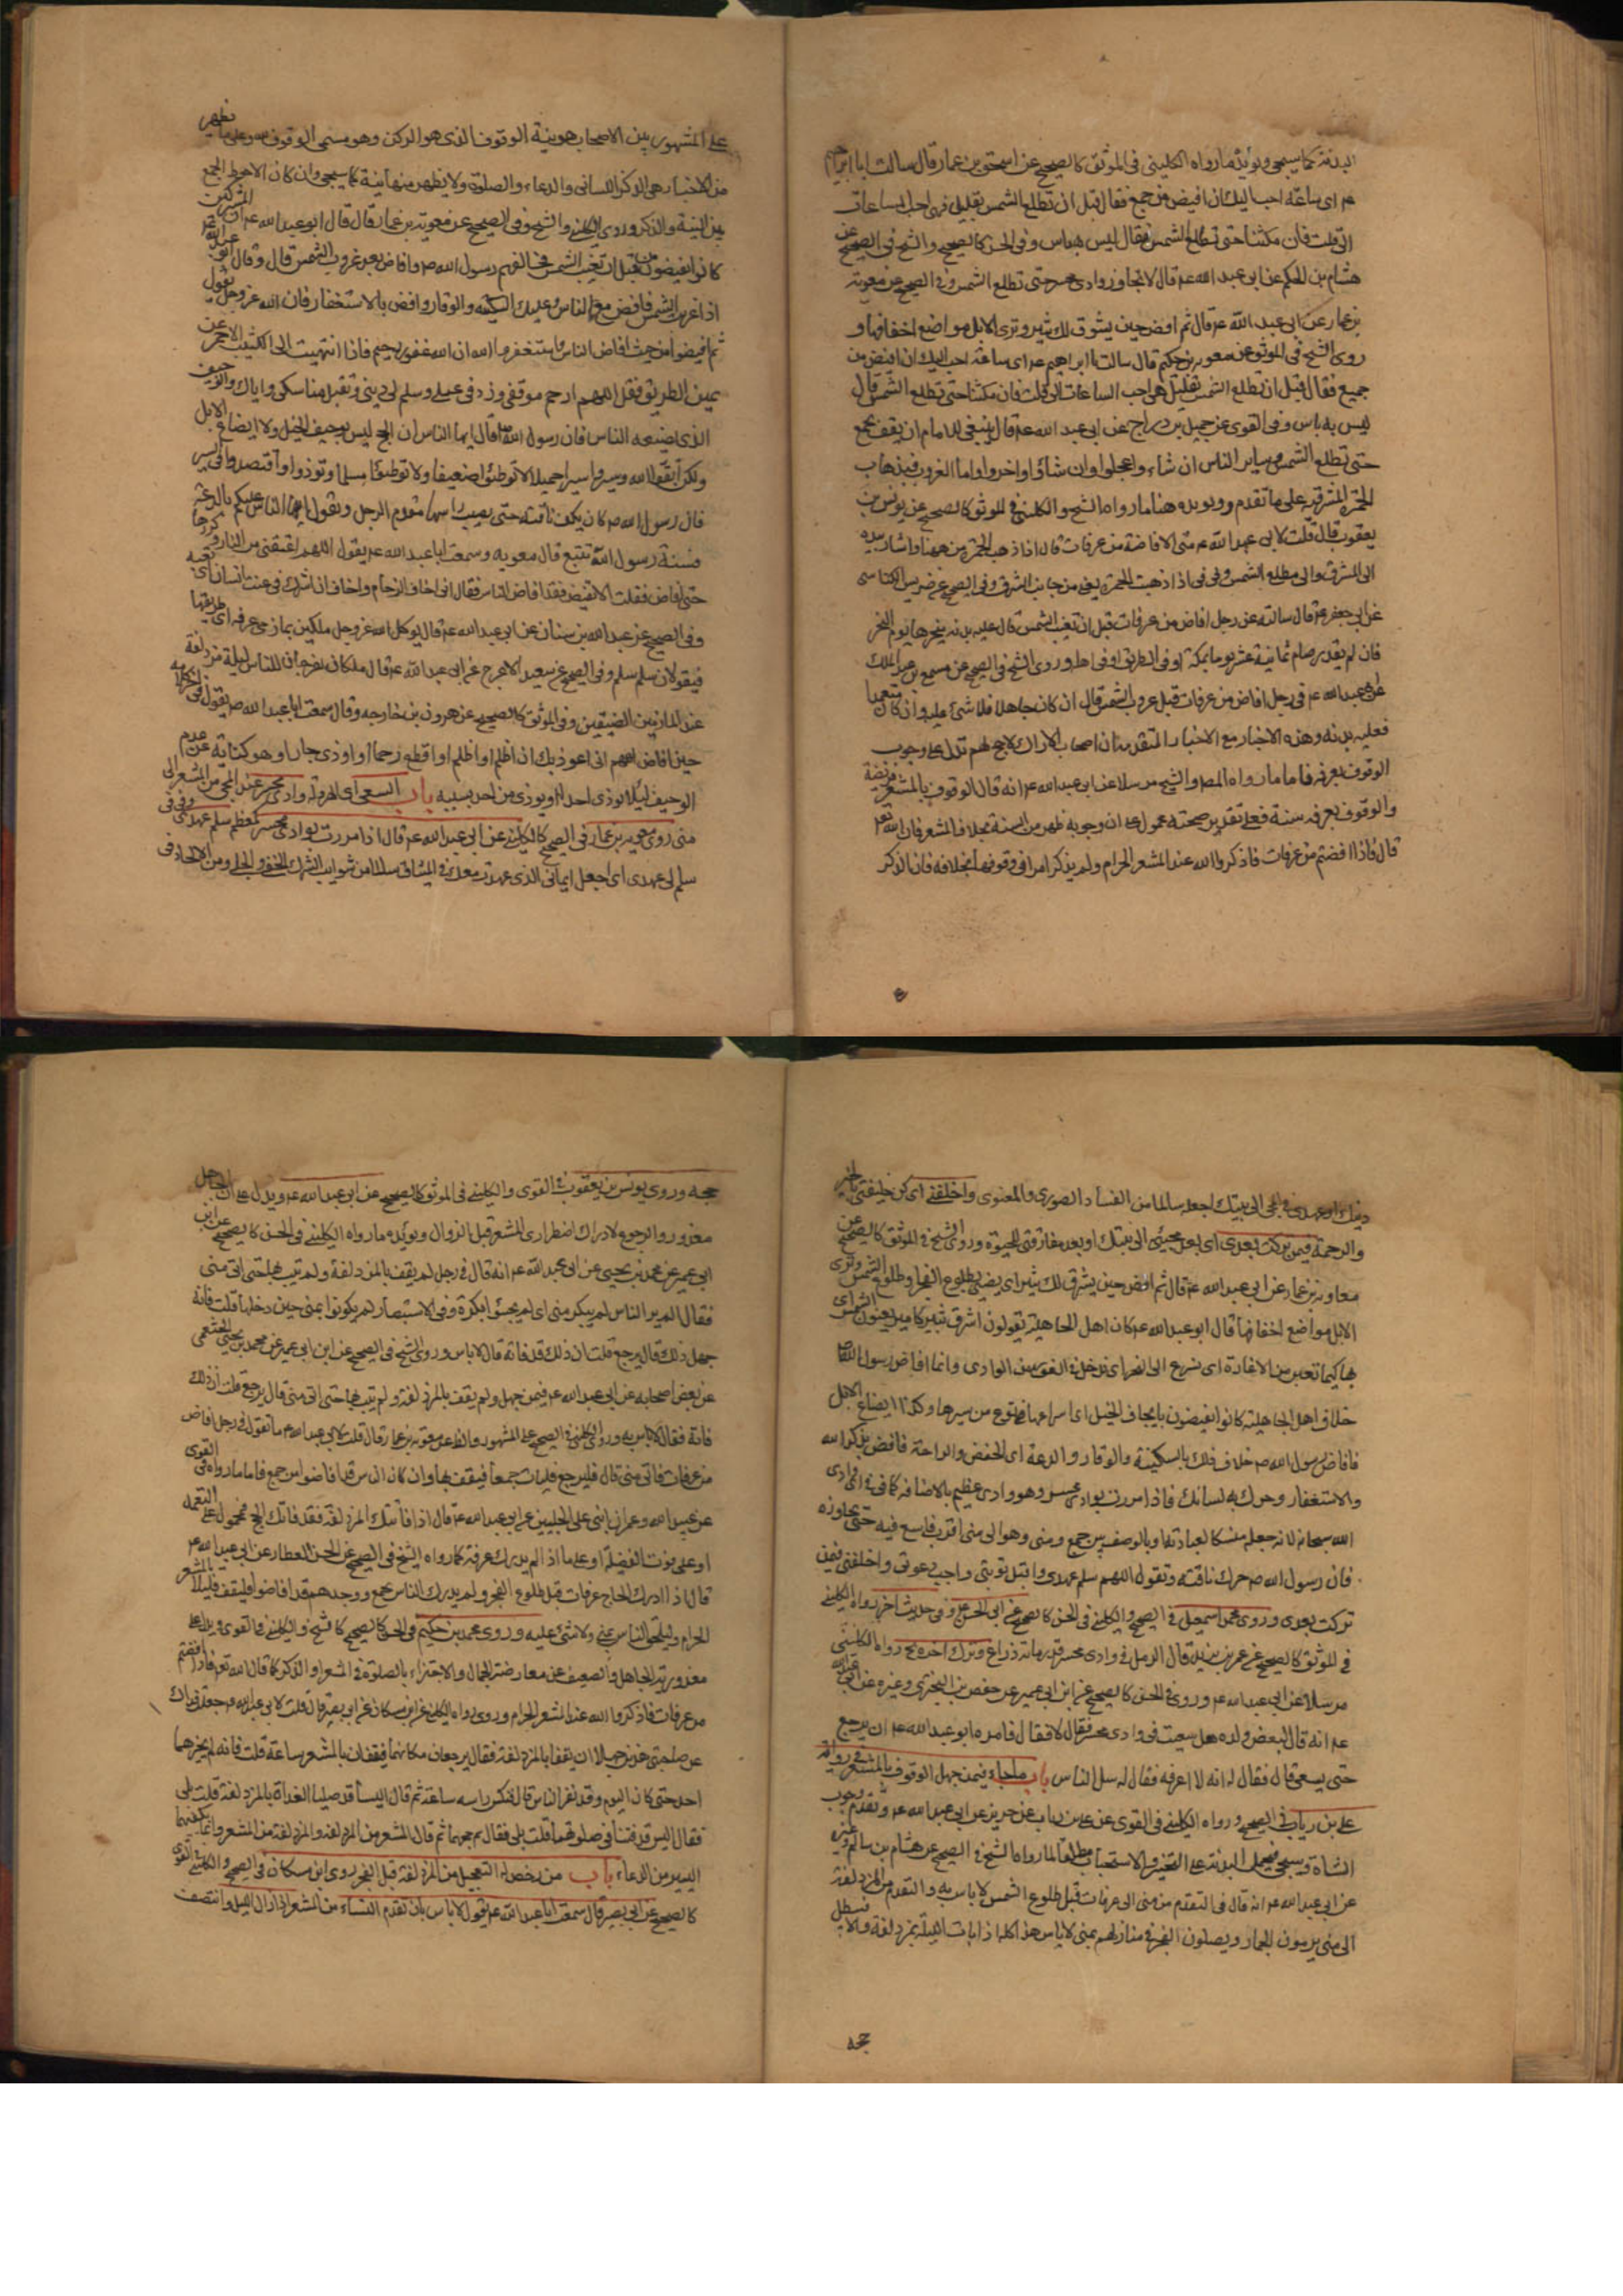 البدنة كما سيجي ويؤيده ما رواه الكليني في الموثق كالصحيح عن اسحق بن عمار قال سالت ابا ابراهيم
عم اى ساعة احب اليك ان افيض من جمع فقال قبل ان تطلع الشمس بقليل فهى احب الساعات
الى قلت فان مكثنا حتى تطلع الشمس فقال ليس به باس وفى الحسن كالصحيح والشيخ فى الصحيح عن
هشام بن الحكم عن ابى عبد الله عم قال لا تجاوز وادى محسر حتى تطلع الشمس وفى الصحيح عن معوية
بن عمار عن ابى عبد الله عم قال ثم افض حين يشرق لك ثبير وترى الابل مواضع اخفافها و
روى الشيخ فى الموثق عن معوية بن حكيم قال سالت ابا ابراهيم عم اى ساعة احب اليك ان افيض من
جميع فقال قبل ان تطلع الشمس بقليل هى احب الساعات الى قلت فان مكثنا حتى تطلع الشمس قال
ليس به باس وفى القوى عن جميل بن دراج عن ابى عبد الله عم قال ينبغى للامام ان يقف بجمع
حتى تطلع الشمس وساير الناس ان شاء واعجلوا وان شاؤا اخروا واما الغروب فبذهاب
الحمرة المشرقية على ما تقدم ويؤيده هنا ما رواه الشيخ والكلينى فى الموثق كالصحيح عن يونس بن
يعقوب قال قلت لابى عبد الله عم متى الافاضة من عرفات قال اذا ذهب الحمرة من ههنا واشار بيده
الى المشرق والى مطلع الشمس وفى فى اذا ذهبت الحمرة يعنى من جانب الشرق وفى الصحيح عن ضريس الكناسى
عن ابى جعفر عم قال سالته عن رجل افاض من عرفات قبل ان تغيب الشمس قال عليه بدنة ينحرها يوم النحر
فان لم يقدر صام ثمانية عشر يوما بمكة او فى الطريق او فى اهله وروى الشيخ فى الصحيح عن مسمع بن عبد الملك
عن ابى عبد الله عم فى رجل افاض من عرفات قبل غروب الشمس قال ان كان جاهلا فلا شئ عليه وان كان متعمدا
فعليه بدنة وهذه الاخبار مع الاخبار المتقدمة ان اصحاب الاراك لا حج لهم تدل على وجوب
الوقوف بعرفه فاما ما رواه المصـ والشيخ مرسلا عن ابى عبد الله عم انه قال الوقوف بالمشعر فريضة
والوقوف بعرفه سنة فعلى تقدير صحته محمول على ان وجوبه ظهر من السنة بخلاف المشعر فان الله تعـ
قال فاذا افضتم من عرفات فاذكروا الله عند المشعر الحرام ولم يذكر امرا فى وقوفها بخلافه فان الذكر
على المشهور بين الاصحاب هو نية الوقوف الذى هو الركن وهو مسمى الوقوف وعلى ما يظهر
من الاخبار هى الذكر اللسانى والدعاء والصلوة ولا يظهر منها نية كما سيجى وان كان الاحوط الجمع
بين النية والذكر وروى الكلينى والشيخ وفى الصحيح عن معوية بن عمار قال قال ابو عبد الله عم ان المشركين
كانوا يفيضون من قبل ان تغيب الشمس فخالفهم رسول الله ص وافاض بعد غروب الشمس قال وقال ابو عبد الله عم
اذا غربت الشمس فافض مع الناس وعليك السكينه والوقار وافض بالاستغفار فان الله عز وجل يقول
ثم افيضوا من حيث افاض الناس واستغفروا الله ان الله غفور رحيم فاذا انتهيت الى الكثيب الاحمر عن
يمين الطريق فقل اللهم ارحم موقفى وزد فى عملى وسلم لى دينى وتقبل مناسكى واياك والوجيف
الذى يصنعه الناس فان رسول الله ص قال ايها الناس ان الحج ليس بوجيف الخيل ولا ايضاع الابل
ولكن اتقوا الله وسيروا سيرا جميلا لا توطئوا ضعيفا ولا توطئوا مسلما وتوذوا واقتصدوا فى السير
فان رسول الله ص كان يكف ناقته حتى يصيب راسها مقدم الرحل ويقول ايها الناس عليكم بالدعة
فسنة رسول الله تتبع قال معويه وسمعت ابا عبد الله عم يقول اللهم اعتقنى من النار وكررها
حتى افاض فقلت الا تفيض فقد افاض الناس فقال انى اخاف الزحام واخاف ان اشرك فى عنت انسان
وفى الصحيح عن عبد الله بن سنان عن ابى عبد الله عم قال يوكل الله عز وجل ملكين بمازمى عرفه
فيقولان سلم سلم وفى الصحيح عن سعيد الاعرج عن ابى عبد الله عم قال ملكان يفرجان للناس ليلة مزدلفة
عند المازمين الضيقين وفى الموثق كالصحيح عن هرون بن خارجه وقال سمعت ابا عبد الله عم يقول فى اخر كلامه
حين افاض اللهم انى اعوذ بك ان اظلم او اظلم او اقطع رحما او اوذى جارا وهو كناية عن عدم
الوجيف لئلا يوذى احدا او يوذى من احد بسببه باب السعى اى الهرولة وادى محسر عند المجئ من المشعر الى
منى روى معوية بن عمار فى الصحيح كالكلينى عن ابى عبد الله عم قال اذا مررت بوادى محسر
سلم لى عهدى اى اجعل ايمانى الذى عهدت معك فى الميثاق سالما من شوايب الشرك الخفى والجلى ومن الالحاد فى
دينك او عهدى فى مجئى الى بيتك اجعله سالما من الفساد الصورى والمعنوى واخلفنى اى كن خليفتى بالخير
والرحمة فيمن تركت بعدى اى بعد مجيئى الى بيتك او بعد مفارقتى للحيوة وروى الشيخ فى الموثق كالصحيح عن
معاوية بن عمار عن ابى عبد الله عم قال ثم افض حين يشرق لك ثبير اى يضئ بطلوع النهار وطلوع الشمس وترى
الابل مواضع اخفافها قال ابو عبد الله عم كان اهل الجاهلية يقولون اشرق ثبير كاميد يعنون الشمس
كيما تغير من الاغارة اى نسرع الى النحر وانما افاض رسول الله ص
خلاف اهل الجاهلية كانوا يفيضون بايجاف الخيل اى اسراعها وكذا ايضاع الابل
فافاض رسول الله ص خلاف ذلك بالسكينة والوقار والدعة اى الخفض والراحة فافض بذكر الله
والاستغفار وحرك به لسانك فاذا مررت بوادى محسر وهو وادى عظيم بالاضافه كما فى
الله سبحانه لانه جعله منسكا لعبادته او بالوصف بين جمع ومنى وهو الى منى اقرب فاسع فيه حتى تجاوزه
فان رسول الله ص حرك ناقته وتقول اللهم سلم عهدى واقبل توبتى واجب دعوتى واخلفنى فيمن
تركت بعدى وروى محمد بن اسمعيل فى الصحيح والكلينى فى الحسن كالصحيح عن ابى الحسن عم وفى حديث اخر رواه الكلينى
فى الموثق كالصحيح عن عمر بن يزيد قال الرمل فى وادى محسر قدر مائة ذراع وترك اخره رواه الكلينى
مرسلا عن ابى عبد الله عم وروى فى الحسن كالصحيح عن ابن ابى عمير عن حفص بن البخترى وغيره عن ابى عبد الله
عم انه قال لبعض ولده هل سعيت فى وادى محسر فقال لا فقال فامره ابو عبد الله عم ان يرجع
حتى يسعى قال فقال له انه لا اعرفه فقال له سل الناس باب ما جاء فيمن جهل الوقوف بالمشعر فى رواية
على بن رئاب فى الصحيح ورواه الكلينى فى القوى عن على بن رئاب عن حريز عن ابى عبد الله عم وتقدم وجوب
الشاة وسيجى فيحمل البدنة على التخيير والاستحباب مطلقا لما رواه الشيخ فى الصحيح عن هشام بن سالم وغيره
عن ابى عبد الله عم انه قال فى التقدم من منى الى عرفات قبل طلوع الشمس لا باس به والتقدم من المزدلفة
الى منى يرمون الجمار ويصلون الفجر فى منازلهم بمنى لا باس هذا كله اذا بات الليلة بمزدلفة والا فيبطل
حجه
حجه وروى يونس بن يعقوب فى القوى والكلينى فى الموثق كالصحيح عن ابى عبد الله عم ويدل على ان الجاهل
معذور والرجوع لادراك اضطرارى المشعر قبل الزوال ويؤيده ما رواه الكلينى فى الحسن كالصحيح عن ابن
ابى عمير عن محمد بن يحيى عن ابى عبد الله عم انه قال فى رجل لم يقف بالمزدلفة ولم يبت بها حتى اتى منى
فقال الم ير الناس لم يبكر منى اى لم يجيئوا بكرة وفى الاستبصار لم يكونوا بمنى حين دخلها قلت فانه
جهل ذلك قال يرجع قلت ان ذلك قد فاته قال لا باس وروى الشيخ فى الصحيح عن ابن ابى عمير عن محمد بن يحيى الخثعمى
عن بعض اصحابه عن ابى عبد الله عم فيمن جهل ولم يقف بالمزدلفة ولم يبت بها حتى اتى منى قال يرجع قلت ان ذلك
فاته فقال لا باس به وروى الكلينى فى الصحيح على المشهور والظاهر عن معوية بن عمار قال قلت لابى عبد الله عم ما تقول فى رجل افاض
من عرفات فاتى منى قال فليرجع فليات جمعا فيقف بها وان كان الناس قد افاضوا من جمع فاما ما رواه فى القوى
عن عبيد الله وعمران ابنى على الحلبيين عن ابى عبد الله عم قال اذا فاتتك المزدلفة فقد فاتك الحج فمحمول على التعمد
او على فوت الفضيلة او على ما اذا لم يدرك عرفة كما رواه الشيخ فى الصحيح عن الحسن العطار عن ابى عبد الله عم
قال اذا ادرك الحاج عرفات قبل طلوع الفجر ولم يدرك الناس بجمع ووجدهم قد افاضوا فليقف قليلا بالمشعر
الحرام وليلحق الناس بمنى ولا شئ عليه وروى محمد بن حكيم فى الحسن كالصحيح كالشيخ والكلينى فى القوى ويدل على
معذورية الجاهل والضعيف عن معارضة الجمال والاجتزاء بالصلوة فى المشعر او الذكر كما قال الله تعـ فاذا افضتم
من عرفات فاذكروا الله عند المشعر الحرام وروى رواه الكلينى عن ابن مسكان عن ابى بصير قال قلت لابى عبد الله عم جعلت فداك
ان صاحبى هذين جهلا ان يقفا بالمزدلفة فقال يرجعان مكانهما فيقفان بالمشعر ساعة قلت فانه لم يخبرهما
احد حتى كان اليوم وقد نفر الناس قال فنكس راسه ساعة ثم قال اليسا قد صليا الغداة بالمزدلفة قلت بلى
فقال اليس قد قنتا فى صلوتهما قلت بلى فقال تم حجهما ثم قال المشعر من المزدلفة والمزدلفة من المشعر وانما يكفيهما
اليسير من الدعاء باب من رخص له التعجيل من المزدلفة قبل الفجر روى ابن مسكان فى الصحيح والكلينى فى القوى
كالصحيح عن ابى بصير قال سمعت ابا عبد الله عم يقول لا باس بان تقدم النساء من المشعر اذا زال الليل وانتصف